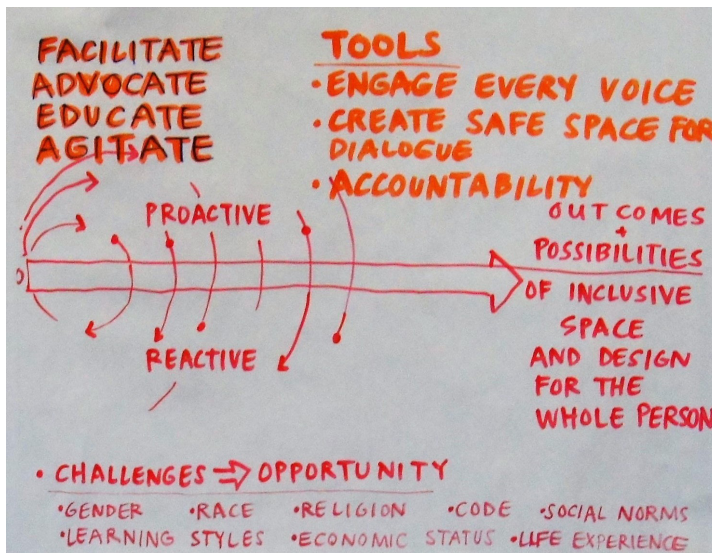 FACILITATE
ADVOCATE
EDUCATE
AGITATE
TOOLS
• ENGAGE EVERY VOICE
• CREATE SAFE SPACE FOR
DIALOGUE
• ACCOUNTABILITY
PROACTIVE
REACTIVE
OUTCOMES
+
POSSIBILITIES
OF INCLUSIVE
SPACE
AND DESIGN
FOR THE
WHOLE PERSON
• CHALLENGES ⇒ OPPORTUNITY
•GENDER •RACE •RELIGION •CODE •SOCIAL NORMS
•LEARNING STYLES •ECONOMIC STATUS •LIFE EXPERIENCE